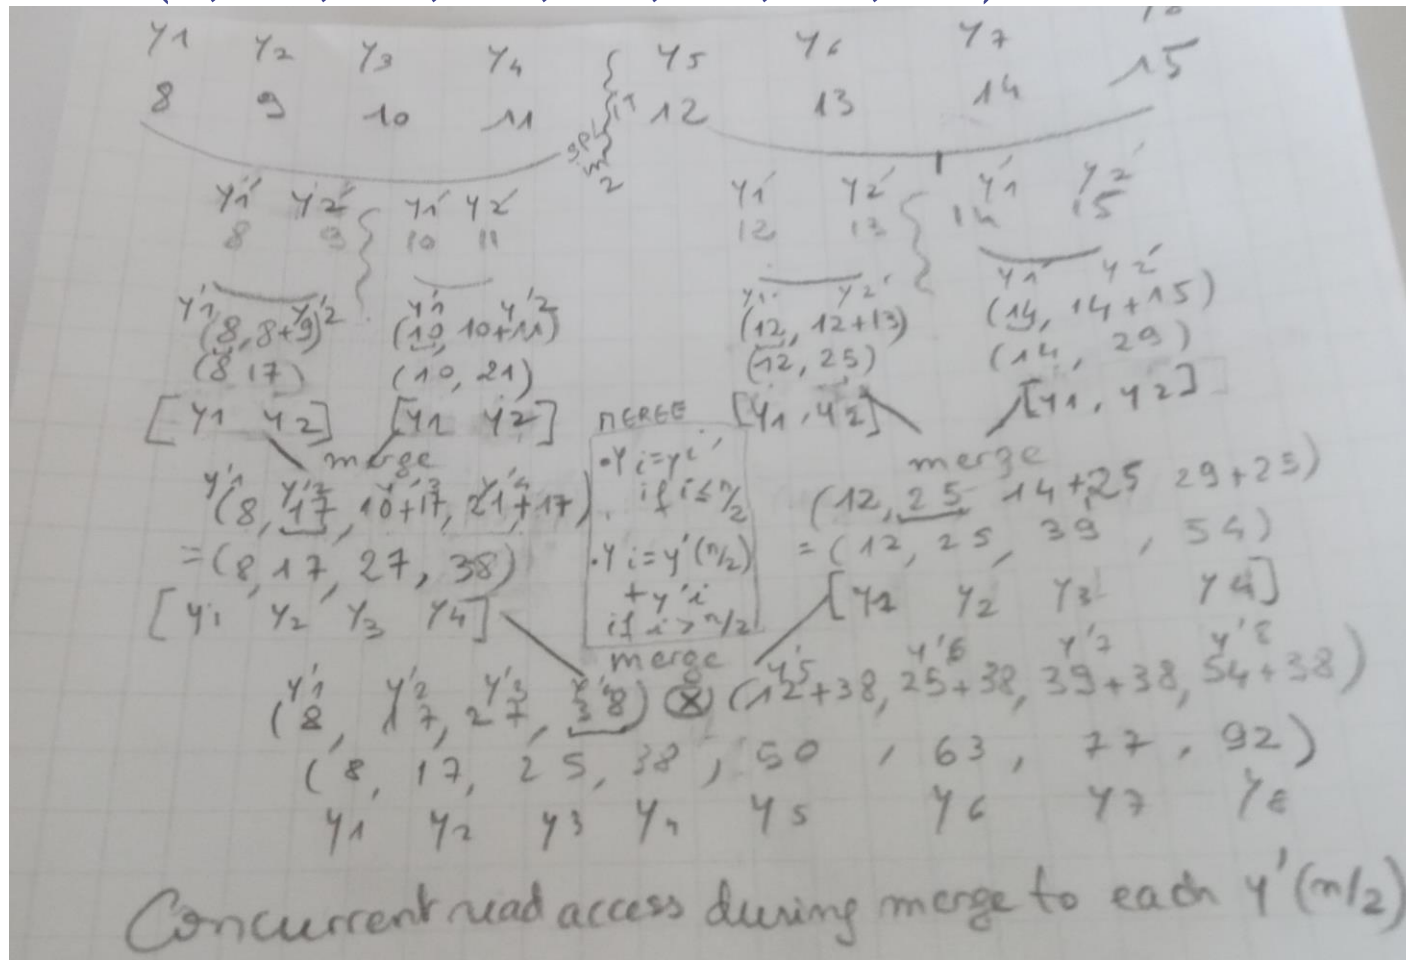 y1 y2 y3 y4 y5 y6 y7
8 9 10 11 12 13 14 15
split in 2
y1' y2' y1' y2' y1' y2' y1' y2'
8 9 10 11 12 13 14 15
y'1 y'2 y'1 y'2 y1' y2' y1' y2'
(8, 8+9) (10, 10+11) (12, 12+13) (14, 14+15)
(8 17) (10, 21) (12, 25) (14, 29)
[y1 y2] [y1 y2] [y1, y2] [y1, y2]
merge merge
MERGE
• yi = yi'
if i ≤ n/2
• yi = y'(n/2)
+ y'i
if i > n/2
y'1 y'2 y'3 y'4
(8, 17, 10+17, 21+17) (12, 25 14+25 29+25)
= (8, 17, 27, 38) = (12, 25, 39, 54)
[y1 y2 y3 y4] [y1 y2 y3 y4]
merge
y'1 y'2 y'3 y'4 y'5 y'6 y'7 y'8
(8, 17, 27, 38) ⊗ (12+38, 25+38, 39+38, 54+38)
(8, 17, 25, 38, 50, 63, 77, 92)
y1 y2 y3 y4 y5 y6 y7 y8
Concurrent read access during merge to each y'(n/2)